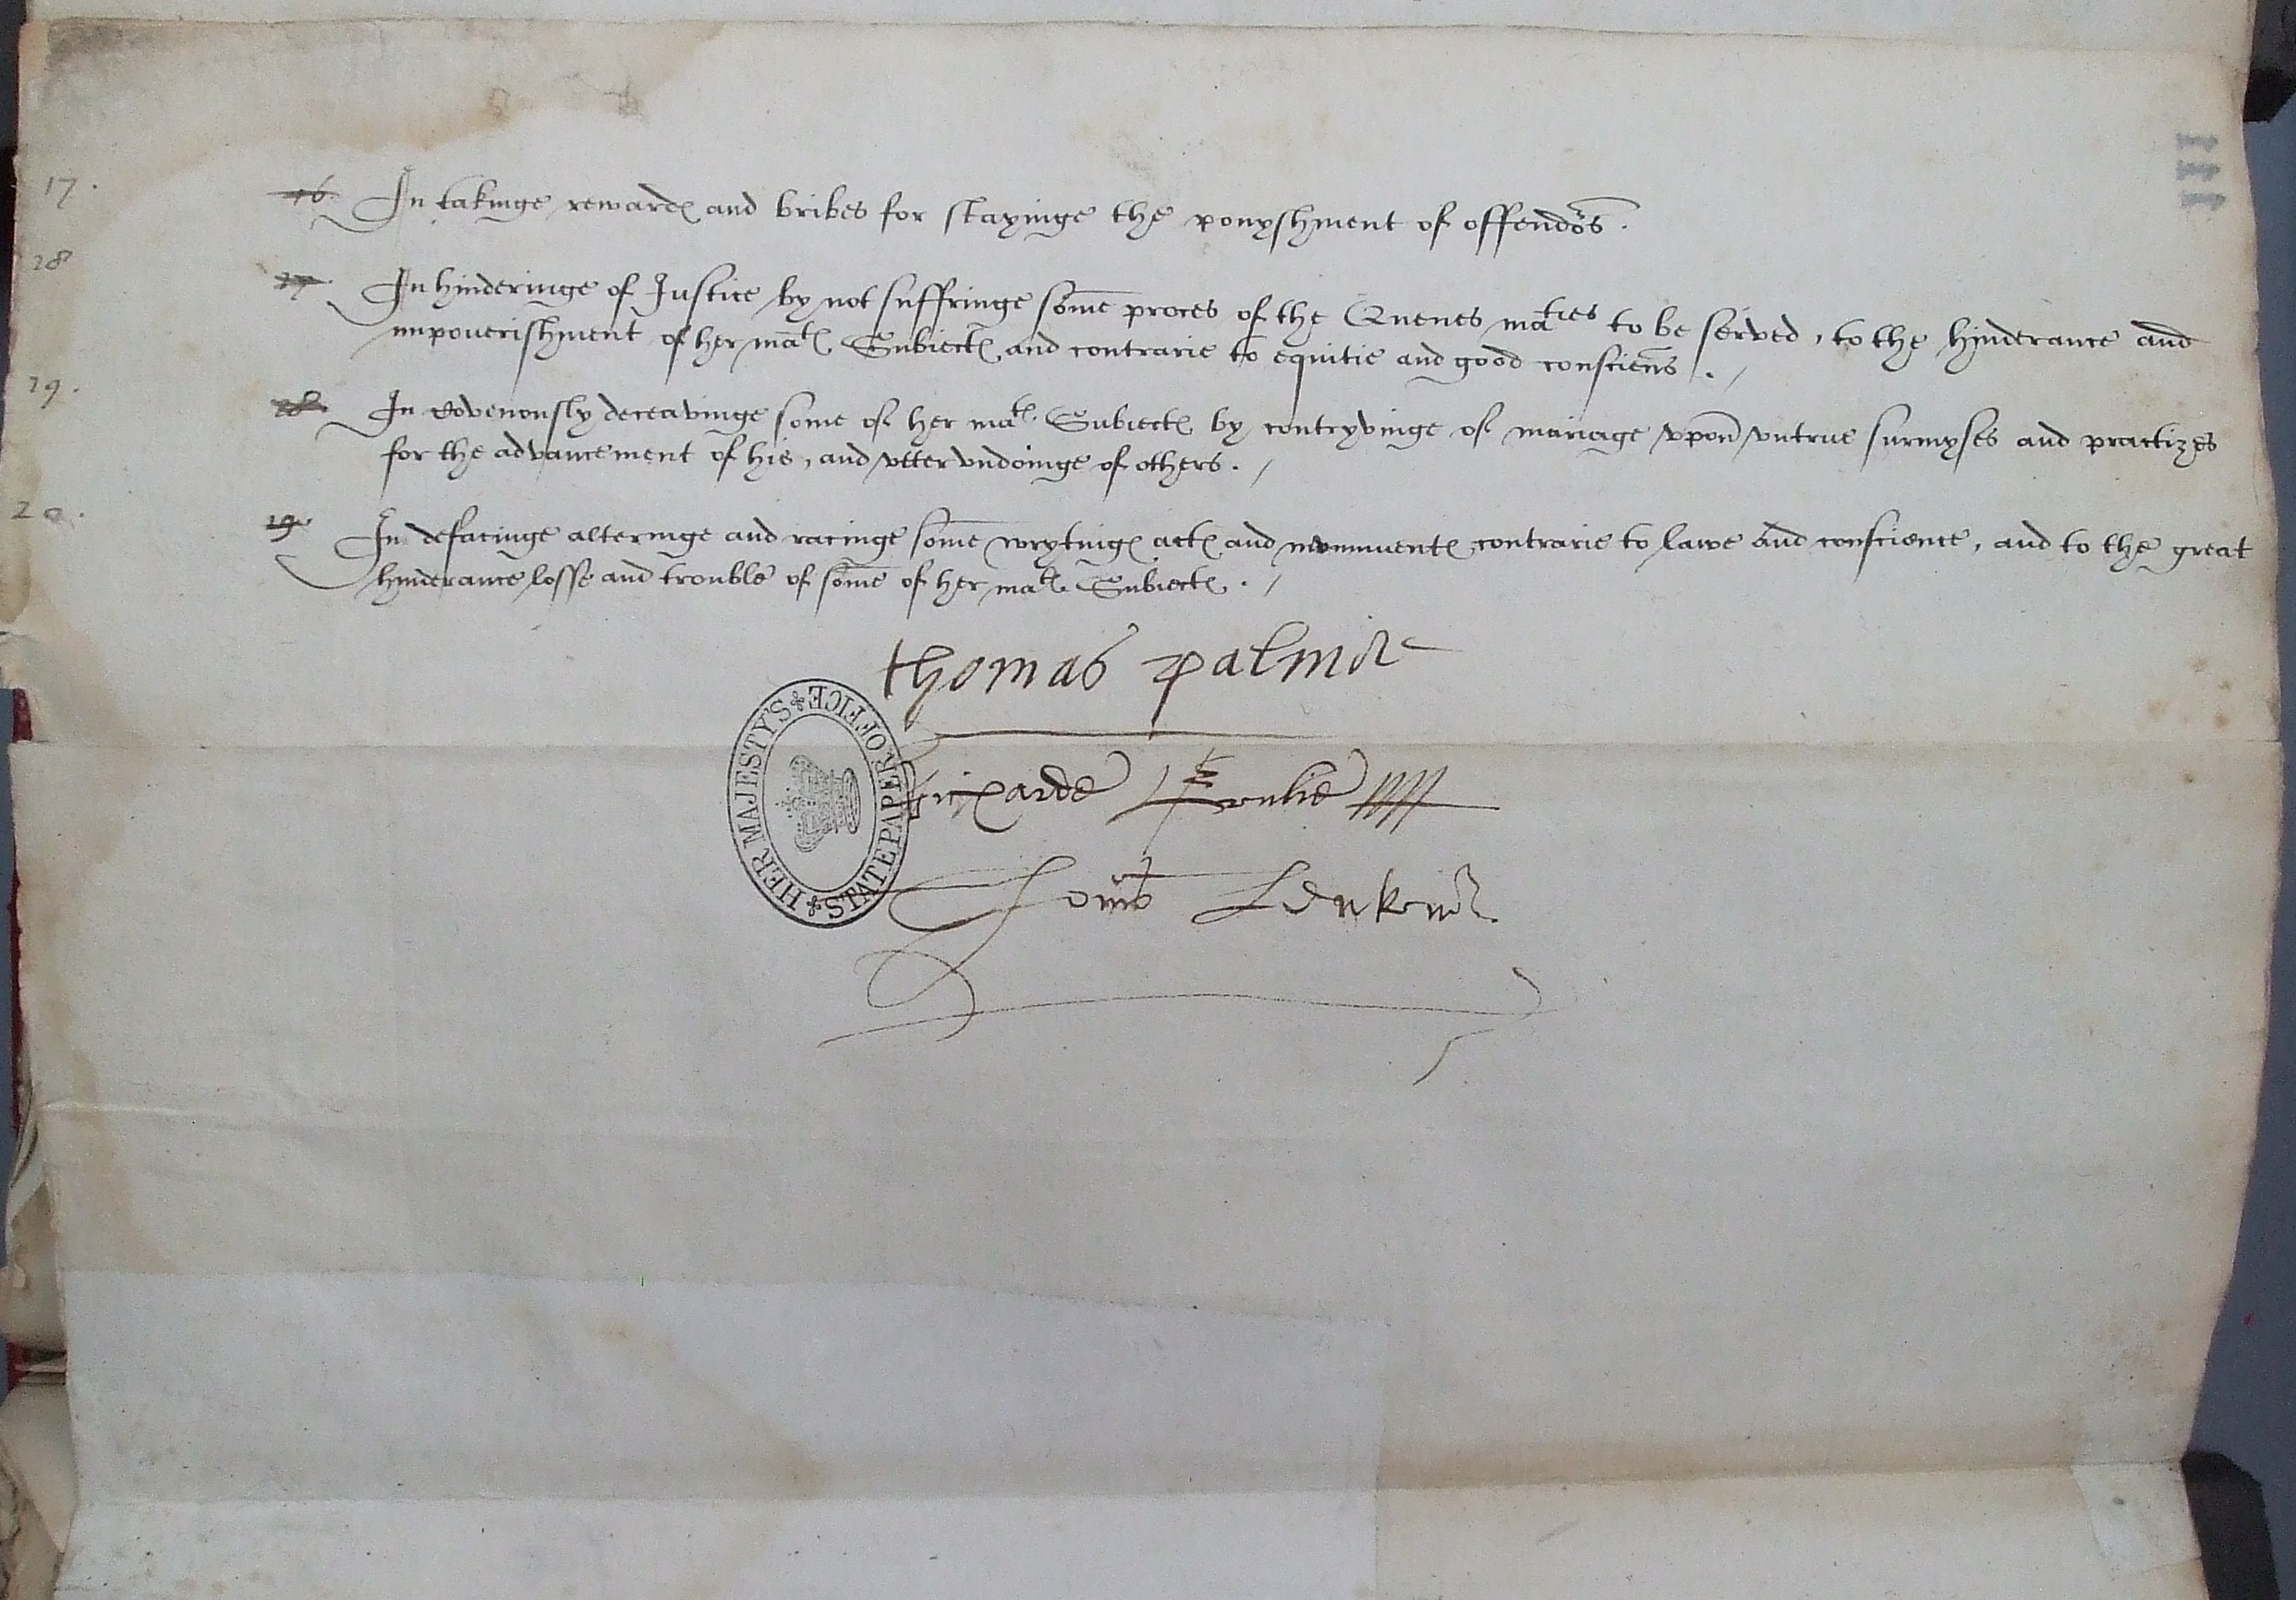 17. 16. In takinge rewardes and bribes for stayinge the ponyshment of offendors.
18 17. In hinderinge of Justice by not suffringe some proces of the Quenes maties to be served, to the hinderance and
impouerishment of her mates Subiectes and contrarie to equitie and good consciens.
19. 18. In covenously deceavinge some of her mates Subiectes by contryvinge of mariage vpon vntrue surmyses and practizes
for the advancement of his, and vtter vndoinge of others.
20. 19. In defacinge alteringe and racinge some wrytinges actes and monumentes contrarie to lawe and conscience, and to the great
hinderance losse and trouble of some of her mates Subiectes.
thomas palmer
HER MAJESTY'S STATE PAPER OFFICE
Richarde
111